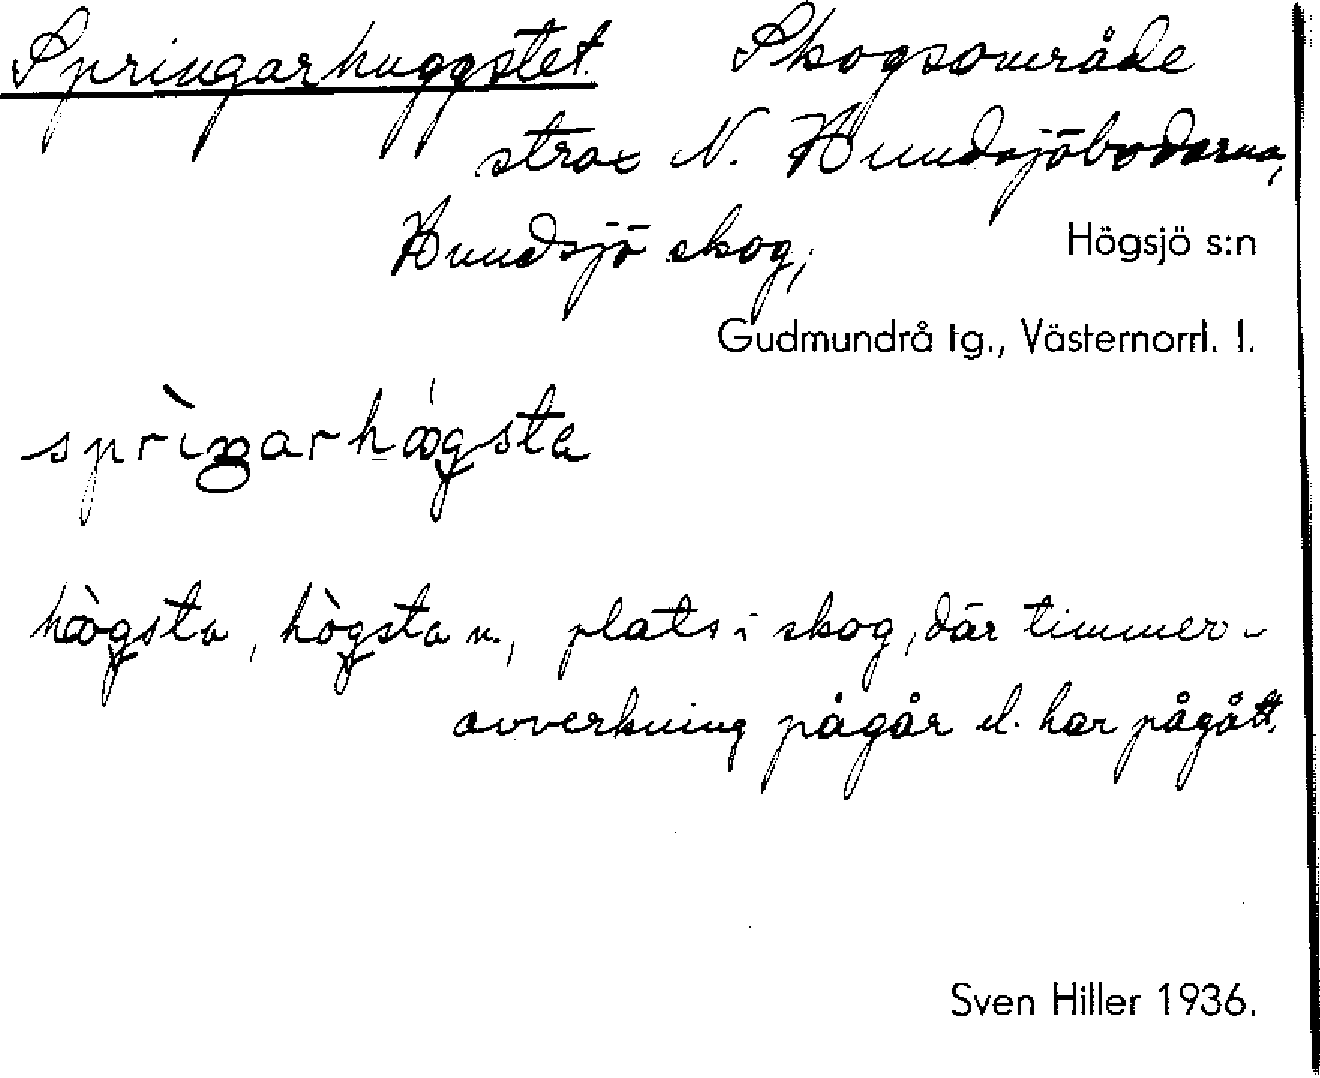 Springarhuggstet. Skogsområde
strax N. Hundsjöbodarna,
Hundsjö skog, Högsjö s:n
Gudmundrå tg., Västernorrl. l.
sprìŋarhógsta
hògsta, hògsta n., plats i skog, där timmer-
avverkning pågår el. har pågått.
Sven Hiller 1936.